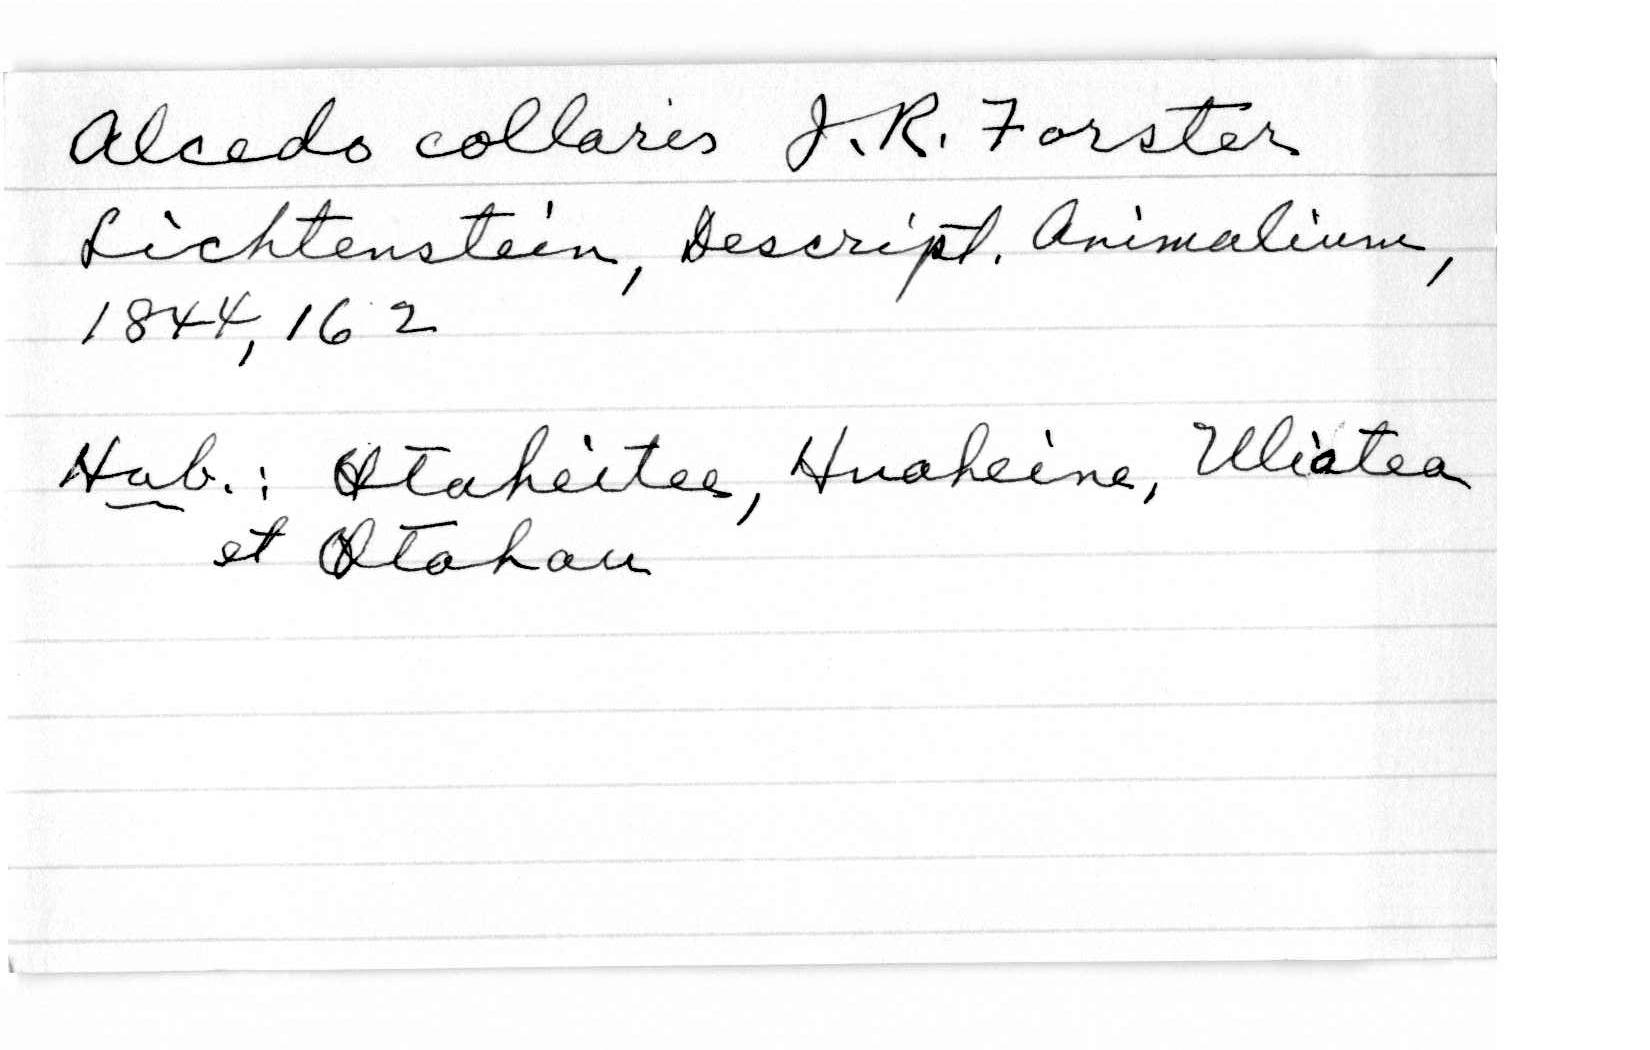 Alcedo collaris J. R. Forster
Lichtenstein, Descript. Animalium,
1844, 162
Hab.: Otaheitee, Huaheine, Uliatea
et Otahau